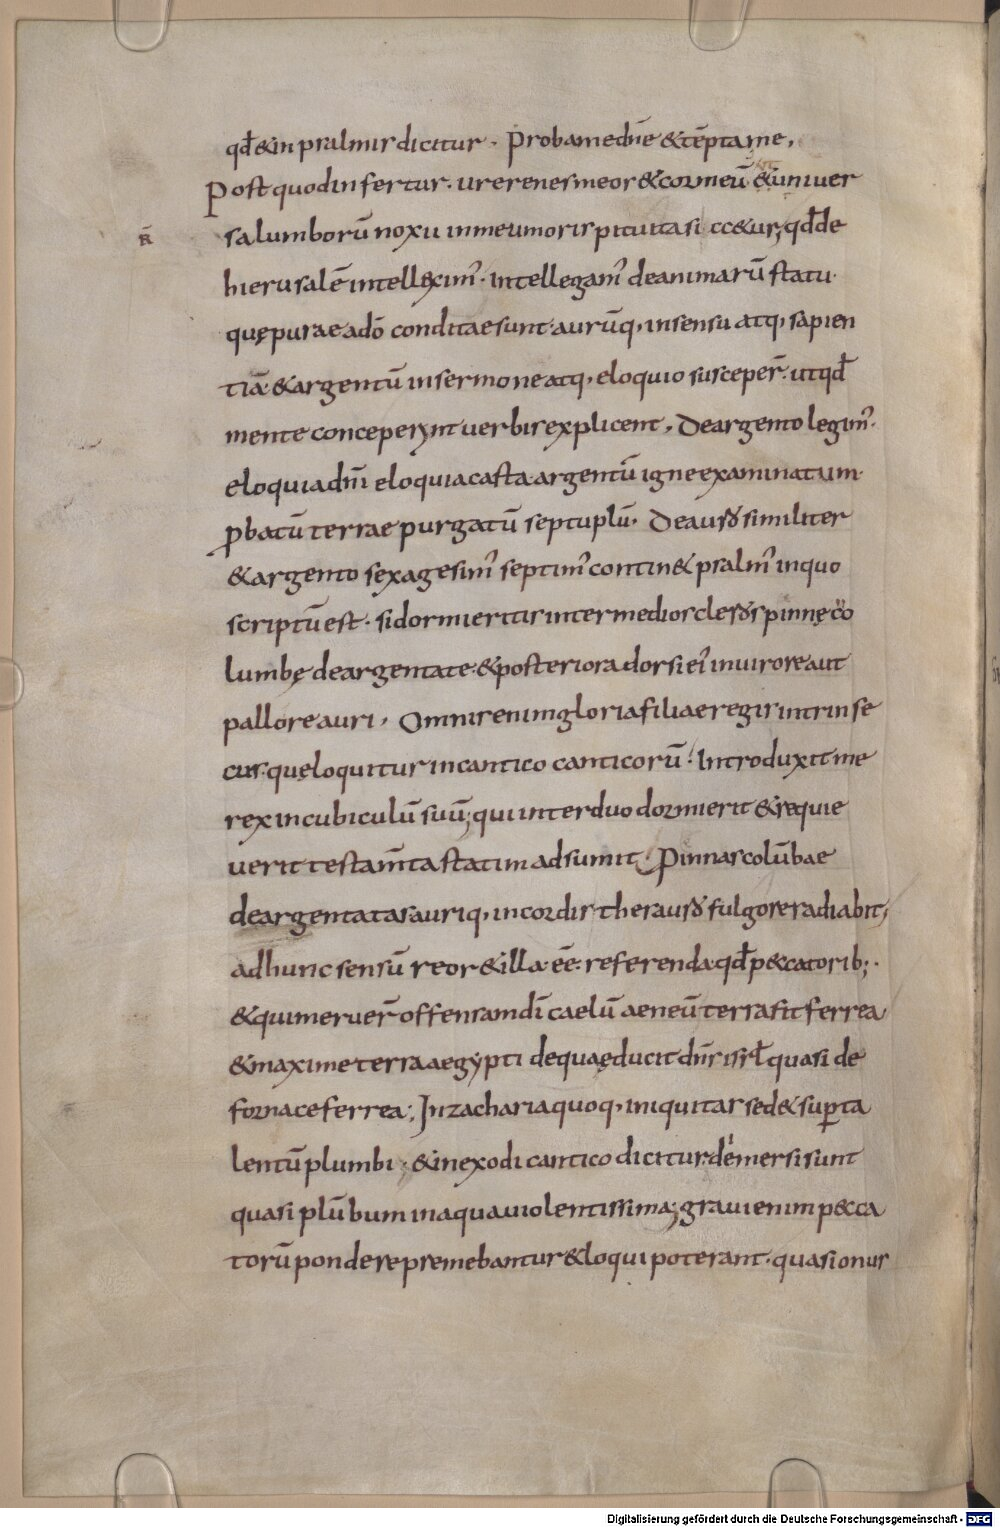 qđ &in psalmis dicitur. Proba me dn̄e & tēpta me,
Post quod infertur. ure renes meos & cor meū & uniuer
R̄
sa lumborū noxii in me umoris pituita siccetur; qđ de
hierusalē intelleximꝰ. intellegamꝰ de animarū statu.
quę purae a dō conditae sunt aurūq, in sensu atq, sapien
tiā & argentū in sermone atq, eloquio susceper̄. ut qđ
mente conceperunt uerbis explicent, De argento legimꝰ.
eloquia dn̄i eloquia casta argentū igne examinatum.
ꝓbatū terrae purgatū septuplū. De auro similiter
& argento sexagesimꝰ septimꝰ contin& psalmꝰ in quo
scriptū est. si dormieritis inter medios cleros pinnę co
lumbę deargentate. & posteriora dorsi eiꝰ in uirore aut
pallore auri, Omnis enim gloria filiae regis intrinse
cus. quę loquitur in cantico canticorū. Introduxit me
rex in cubiculū suū; qui inter duo dormierit & requie
uerit testam̄ta statim adsumit. Pinnas colūbae
deargentatas auriq, in cordis thesauro fulgore radiabit,
ad hunc sensū reor & illa ēē. referenda qđ peccatorib;.
& qui meruer̄ offensam dī caelū aeneū terra fit ferrea
& maxime terra aegypti de qua educit dn̄s isrł quasi de
fornace ferrea; In zacharia quoq, iniquitas sed& suꝑ ta
lentū plumbi. & in exodi cantico dicitur. demersi sunt
quasi plūbum in aqua uiolentissima; graui enim pecca
torū pondere premebantur & loqui poterant. quasi onus